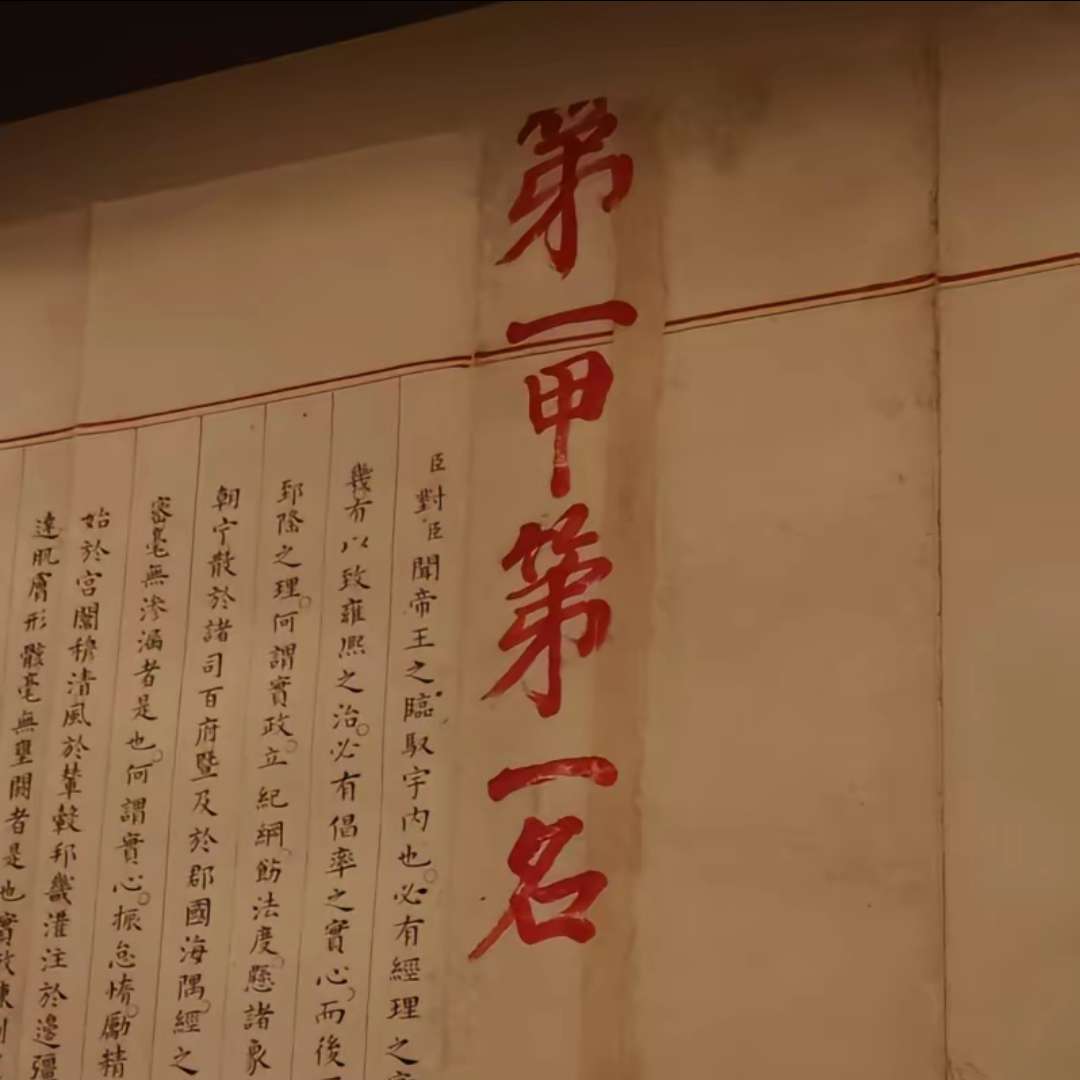 第一甲第一名
臣對臣聞帝王之臨馭宇內也。必有經理之
幾有以致雍熙之治。必有倡率之實心。而後
郅隆之理。何謂實政。立紀綱。飭法度。懸諸象
朝宁散於諸司百府暨及於郡國海隅。經之
密毫無滲漏者是也。何謂實心。振怠惰。勵精
始於宮闈穆清風於輦轂邦畿灌注於邊疆
達肌膚形骸毫無壅閼者是也實政